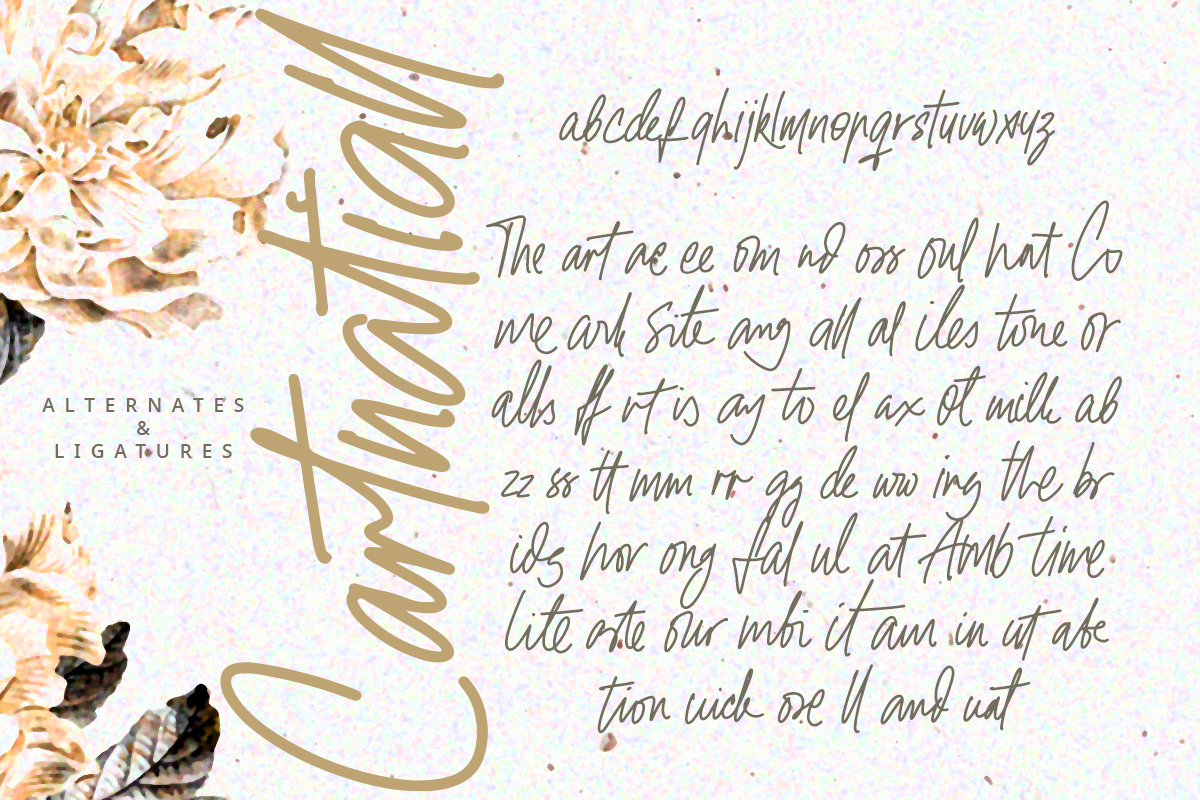 Cartnatiall
ALTERNATES
&
LIGATURES
abcdefghijklmnopqrstuvwxyz
The art ae ee om nd oss oul hat Co
me ark Site ang all al iles tone or
alls ff rt is ay to el ax ot milk ab
zz ss tt mm rr gg de ww ing the br
ids hor ong fal ul at Amb time
lite ste our mbi it am in ut abe
tion uick ose ll and uat